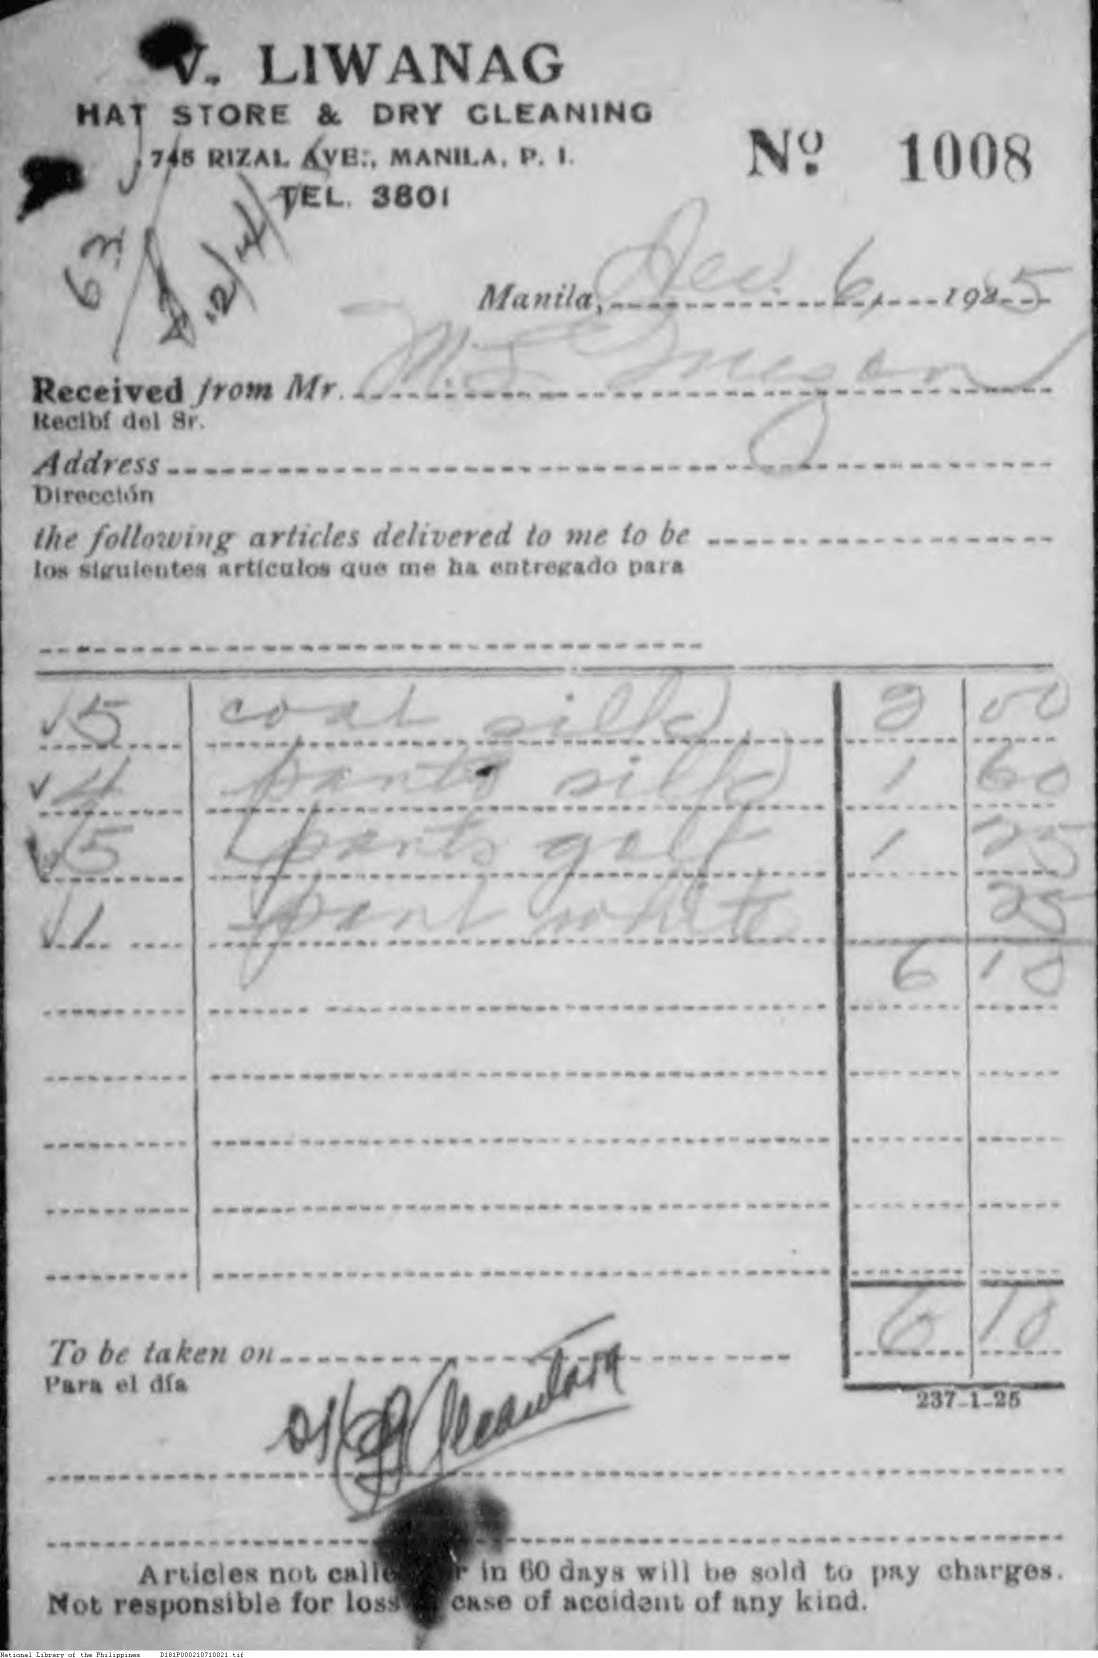 V. LIWANAG
HAT STORE & DRY CLEANING
745 RIZAL AVE., MANILA, P. I.
TEL. 3801
Nº 1008
Manila, Dec. 6, 1925
Received from Mr. M L
Recibí del Sr.
Address
Dirección
the following articles delivered to me to be
los siguientes artículos que me ha entregado para
5 coat silk 2 00
4 pants silk 1 60
5 pants golf 1 25
1 pant white 25
6 10
6 10
To be taken on
Para el día
237-1-25
Articles not calle r in 60 days will be sold to pay charges.
Not responsible for loss case of accident of any kind.
National Library of the Philippines D181P000210710021.tif